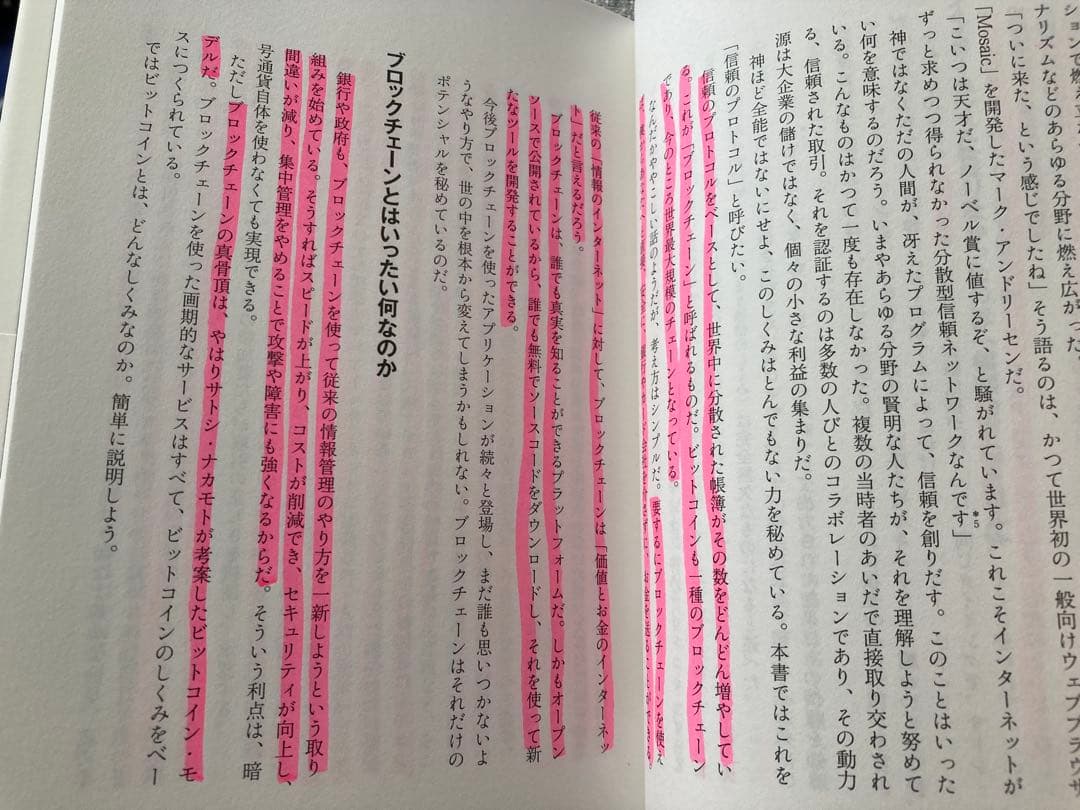 ションで燃え
ナリズムなどのあらゆる分野に燃え広がった
「ついに来た、という感じでしたね」そう語るのは、かつて世界初の一般向けウェブブラウザ
「Mosaic」を開発したマーク・アンドリーセンだ。
「こいつは天才だ、ノーベル賞に値するぞ、と騒がれています。これこそインターネットが
ずっと求めつつ得られなかった分散型信頼ネットワークなんです」*5
神ではなくただの人間が、冴えたプログラムによって、信頼を創りだす。このことはいった
い何を意味するのだろう。いまやあらゆる分野の賢明な人たちが、それを理解しようと努めて
いる。こんなものはかつて一度も存在しなかった。複数の当時者のあいだで直接取り交わされ
る、信頼された取引。それを認証するのは多数の人びとのコラボレーションであり、その動力
源は大企業の儲けではなく、個々の小さな利益の集まりだ。
神ほど全能ではないにせよ、このしくみはとんでもない力を秘めている。本書ではこれを
「信頼のプロトコル」と呼びたい。
信頼のプロトコルをベースとして、世界中に分散された帳簿がその数をどんどん増やしてい
る。これが「ブロックチェーン」と呼ばれるものだ。ビットコインも一種のブロックチェーン
であり、今のところ世界最大規模のチェーンとなっている。
なんだかややこしい話のようだが、考え方はシンプルだ。要するにブロックチェーンを使え
銀行やカード会社を介さずに、お金を送ることができる。
従来の「情報のインターネット」に対して、ブロックチェーンは「価値とお金のインターネッ
ト」だと言えるだろう。
ブロックチェーンは、誰でも真実を知ることができるプラットフォームだ。しかもオープン
ソースで公開されているから、誰でも無料でソースコードをダウンロードし、それを使って新
たなツールを開発することができる。
今後ブロックチェーンを使ったアプリケーションが続々と登場し、まだ誰も思いつかないよ
うなやり方で、世の中を根本から変えてしまうかもしれない。ブロックチェーンはそれだけの
ポテンシャルを秘めているのだ。
ブロックチェーンとはいったい何なのか
銀行や政府も、ブロックチェーンを使って従来の情報管理のやり方を一新しようという取り
組みを始めている。そうすればスピードが上がり、コストが削減でき、セキュリティが向上し、
間違いが減り、集中管理をやめることで攻撃や障害にも強くなるからだ。そういう利点は、暗
号通貨自体を使わなくても実現できる。
ただしブロックチェーンの真骨頂は、やはりサトシ・ナカモトが考案したビットコイン・モ
デルだ。ブロックチェーンを使った画期的なサービスはすべて、ビットコインのしくみをベー
スにつくられている。
ではビットコインとは、どんなしくみなのか。簡単に説明しよう。